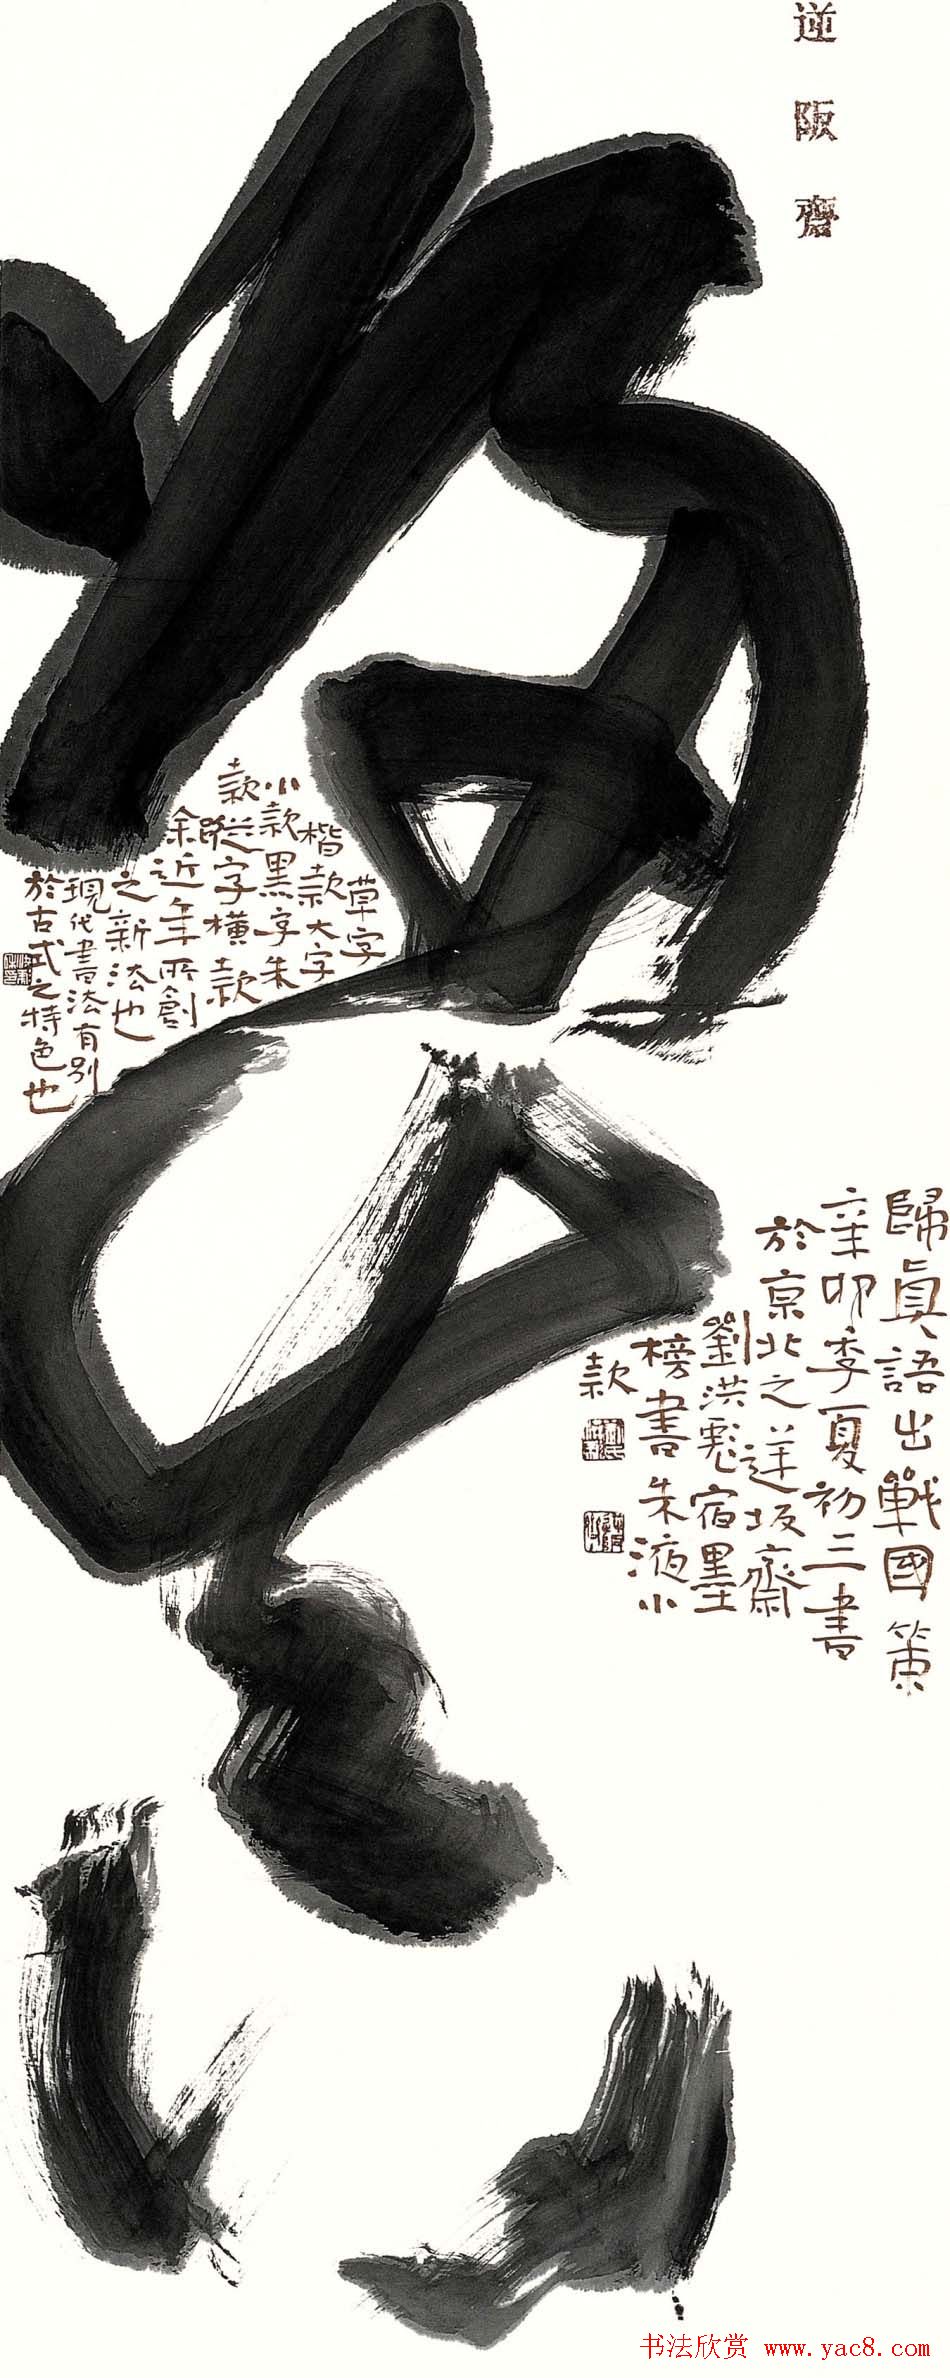 逆阪齋
歸真
歸眞語出戰國策
辛卯季夏初三書
於京北之逆坂齋
劉洪彪宿墨
榜書朱液小
款
草字
楷款大字
小款黑字朱
款縱字橫款
余近年所創
之新法也
現代書法有別
於古式之特色也
书法欣赏 www.yac8.com